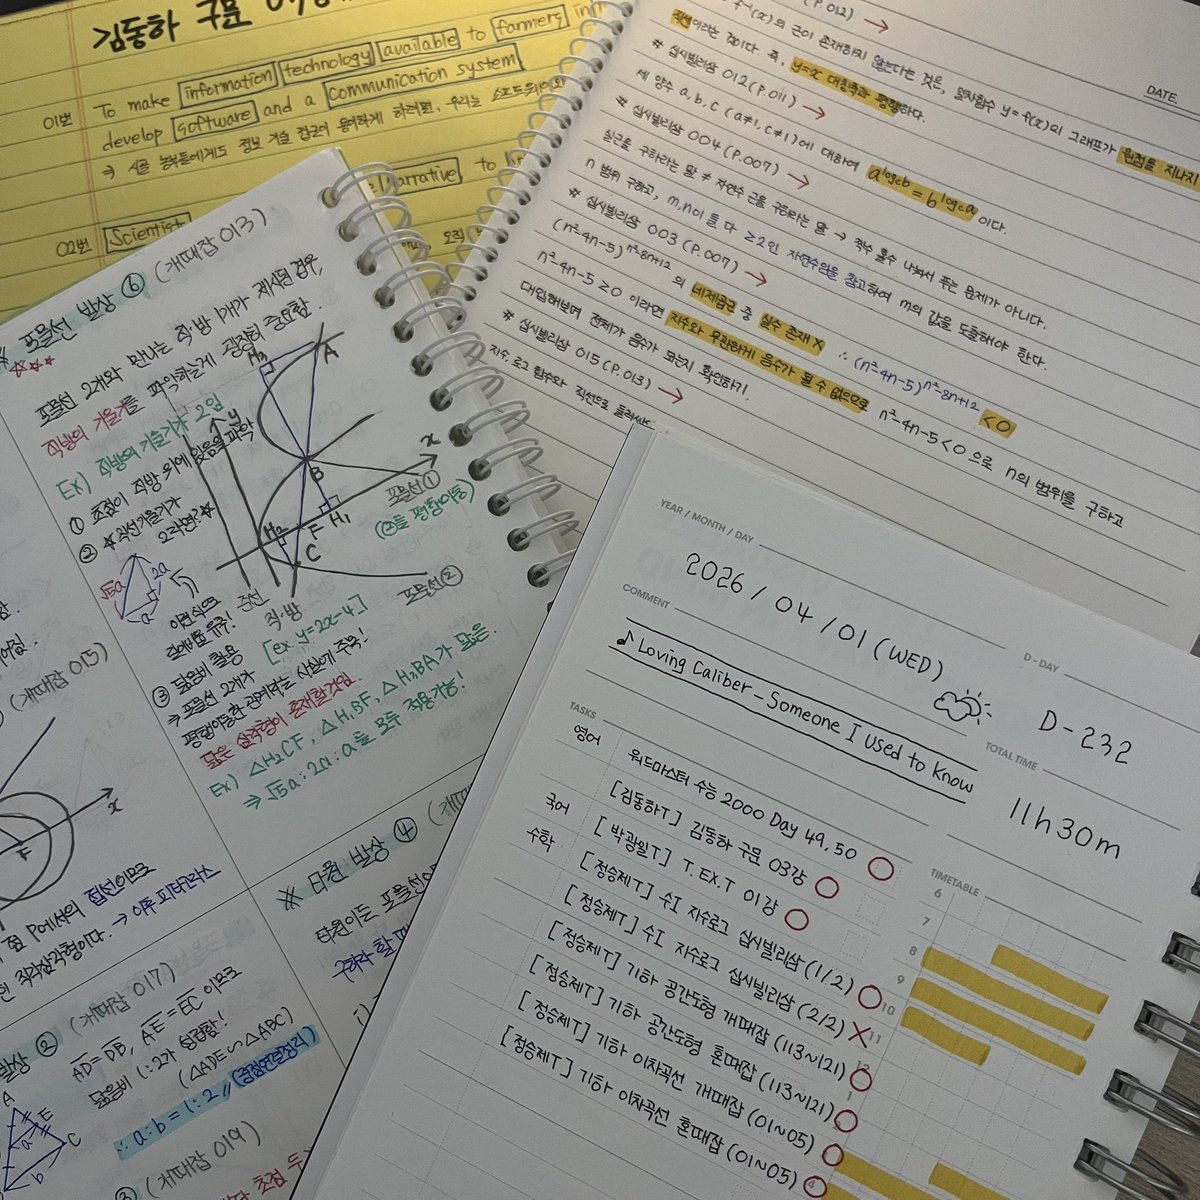 김동하 구문
01번 To make information technology available to farmers in
develop software and a communication system
⇒ 시골 농부들에게도 정보 기술 접근이 용이하게 하려면, 우리는 소프트웨어와
narrative to
02번 Scientist
(P.012) →
f⁻¹(x)의 근이 존재하지 않는다는 것은, 일차함수 y=f(x)의 그래프가 원점을 지나지
직선이라는 것이다. 즉, y=x 대칭축과 평행하다.
# 십시빌리삼 012 (P.011) →
세 양수 a, b, c (a≠1, c≠1)에 대하여 a^log_c b = b^log_c a 이다.
# 십시빌리삼 004 (P.007) →
실근을 구하라는 말 ≠ 자연수 근을 구하라는 말 → 짝수 홀수 나눠서 푸는 문제가 아니다.
n 범위 구하고, m, n이 둘 다 ≥2인 자연수임을 참고하여 m의 값을 도출해야 한다.
# 십시빌리삼 003 (P.007) →
(n²-4n-5)^n²-8n+12 의 네제곱근 중 실수 존재 X ∴ (n²-4n-5)^n²-8n+12 <0
n²-4n-5≥0 이라면 지수와 무관하게 음수가 될 수 없으므로 n²-4n-5<0 으로 n의 범위를 구하고
대입해보며 전체가 음수가 되는지 확인하기.
# 십시빌리삼 015 (P.013) →
지수.로그 함수와 직선으로
DATE.
※ 포물선 발상 ⑥ (개때잡 013)
☆☆☆
포물선 2개와 만나는 직·방 1개가 제시된 경우,
직방의 기울기를 파악하는게 굉장히 중요함.
Ex) 직방의 기울기가 2임
① 초점이 직방 위에 있음을 파악
② ☆직선 기울기가
2라면?☆
√5a 2a a
이런식으로
길이비를 유추!
H₃ A y B x H₂ F H₁ C
포물선①
(②를 평행이동)
준선 직·방 포물선②
[ex y=2x-4]
③ 닮음비 활용
⇒ 포물선 2개가
평행이동한 관계라는 사실에 주목!
닮은 삼각형이 존재할것임.
Ex) △H₂CF, △H₁BF, △H₃BA가 닮음.
⇒ √5a : 2a : a를 모두 적용가능!
(개때잡 015)
x
F
점 P에서의 접선이므로
직각삼각형이다. → 이후 피타고라스
발상 ② (개때잡 017)
AD=DB, AE=EC 이므로
닮음비 1:2가 성립함!
(△ADE∽△ABC)
∴ a:b = 1:2 // (중점연결정리)
A E a C b
③ (개때잡 019)
초점 두
※ 타원 발상 ④ (개때
타원이든 포물선이
구하라 할 때
YEAR / MONTH / DAY
2026 / 04 / 01 (WED)
COMMENT
♪ Loving Caliber – Someone I Used to Know
D - DAY
D-232
TOTAL TIME
11h 30m
TASKS
영어 워드마스터 수능 2000 Day 49, 50
[김동하T] 김동하 구문 03강
국어 [박광일T] T.EX.T 01강
수학 [정승제T] 수I 지수로그 십시빌리삼 (1/2)
[정승제T] 수I 지수로그 십시빌리삼 (2/2)
[정승제T] 기하 공간도형 개때잡 (113~121)
[정승제T] 기하 공간도형 혼때잡 (113~121)
[정승제T] 기하 이차곡선 개때잡 (01~05)
[정승제T] 기하 이차곡선 혼때잡 (01~05)
TIMETABLE
6
7
8
9
10
11
12
1
4